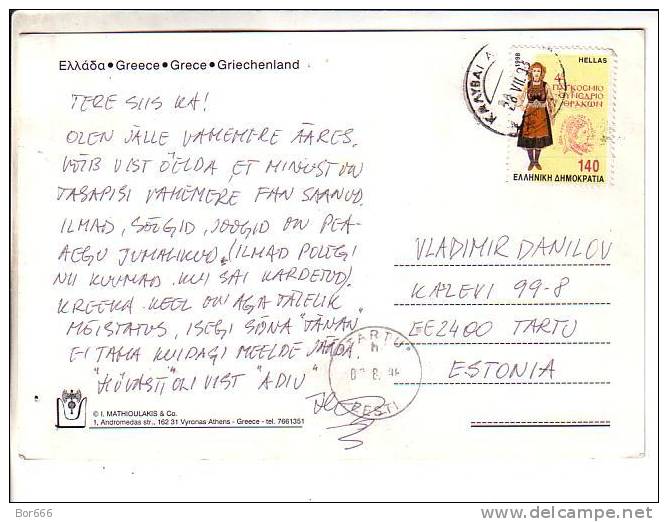 Ελλάδα • Greece • Grece • Griechenland
TERE SIIS KA!
OLEN JÄLLE VAHEMERE ÄÄRES.
VÕIB VIST ÖELDA, ET MINUST ON
TASAPISI VAHEMERE FAN SAANUD.
ILMAD, SÖÖGID, JOOGID ON PEA-
AEGU JUMALIKUD, (ILMAD POLEGI
NII KUUMAD KUI SAI KARDETUD).
KREEKA KEEL ON AGA TÄIELIK
MÕISTATUS, ISEGI SÕNA "TÄNAN"
EI TAHA KUIDAGI MEELDE JÄÄDA.
OLI VIST "ADIU"
© I. MATHIOULAKIS & Co.
1, Andromedas str., 162 31 Vyronas Athens - Greece - tel. 7661351
ΚΑΛΥΒΑΙ
VII
1998
HELLAS
4º ΠΑΓΚΟΣΜΙΟ
ΣΥΝΕΔΡΙΟ
ΘΡΑΚΩΝ
140
ΕΛΛΗΝΙΚΗ ΔΗΜΟΚΡΑΤΙΑ
VLADIMIR DANILOV
KALEVI 99-8
EE2400 TARTU
ESTONIA
TARTU
EESTI
Bor666
http://www.delcampe.net